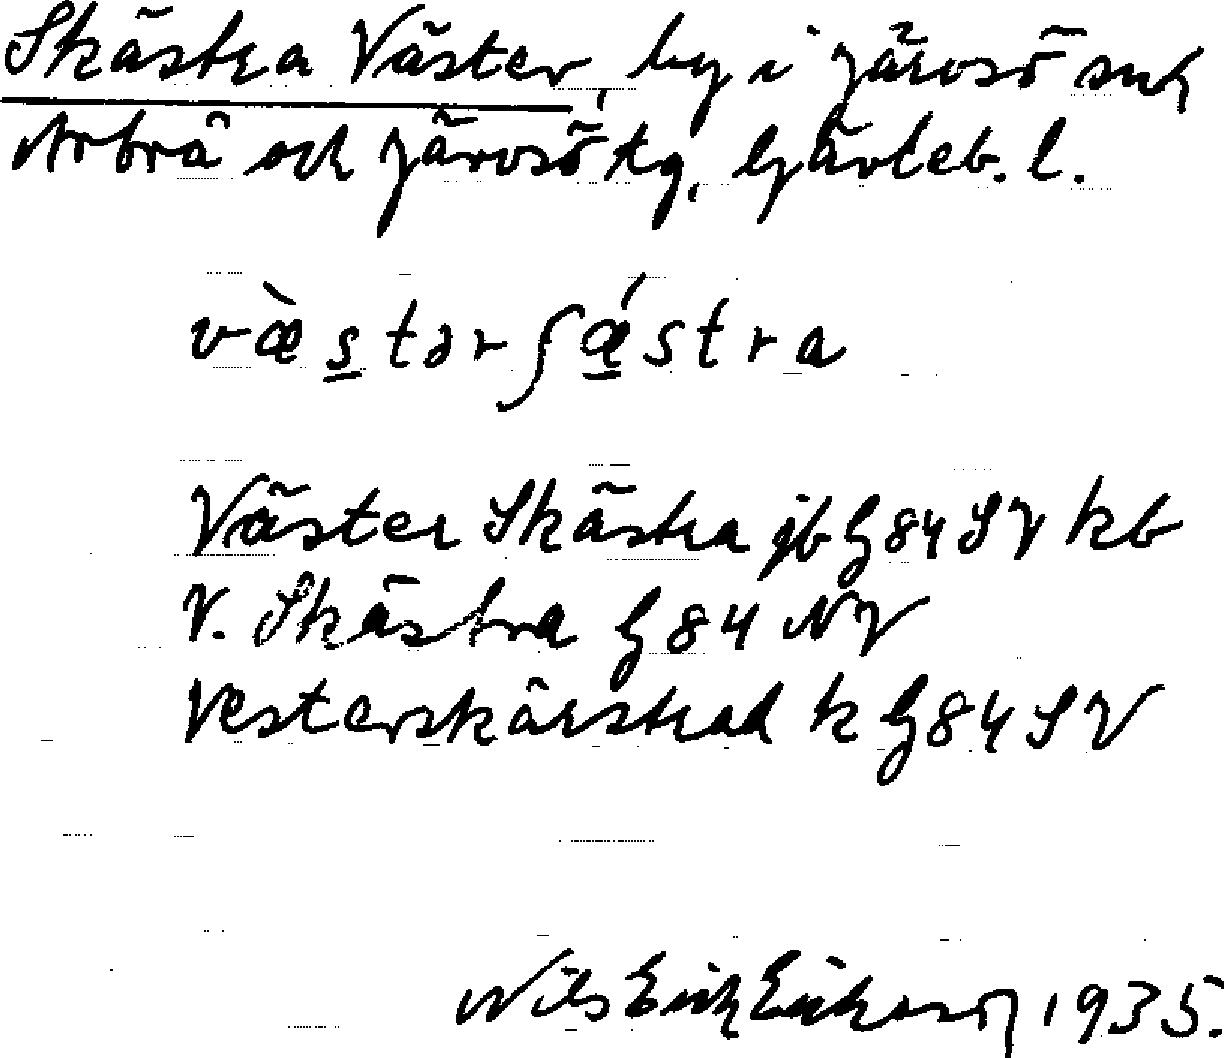 Skästra Väster, by i Järvsö snh
Arbrå och Järvsö tg, Gävleb. l.
væ̀s̲tərʃǽ̲stra
Väster Skästra jb G84SV kb
V. Skästra G84NV
Vesterskärstrad k G84SV
Nils Erik Eriksson 1935.